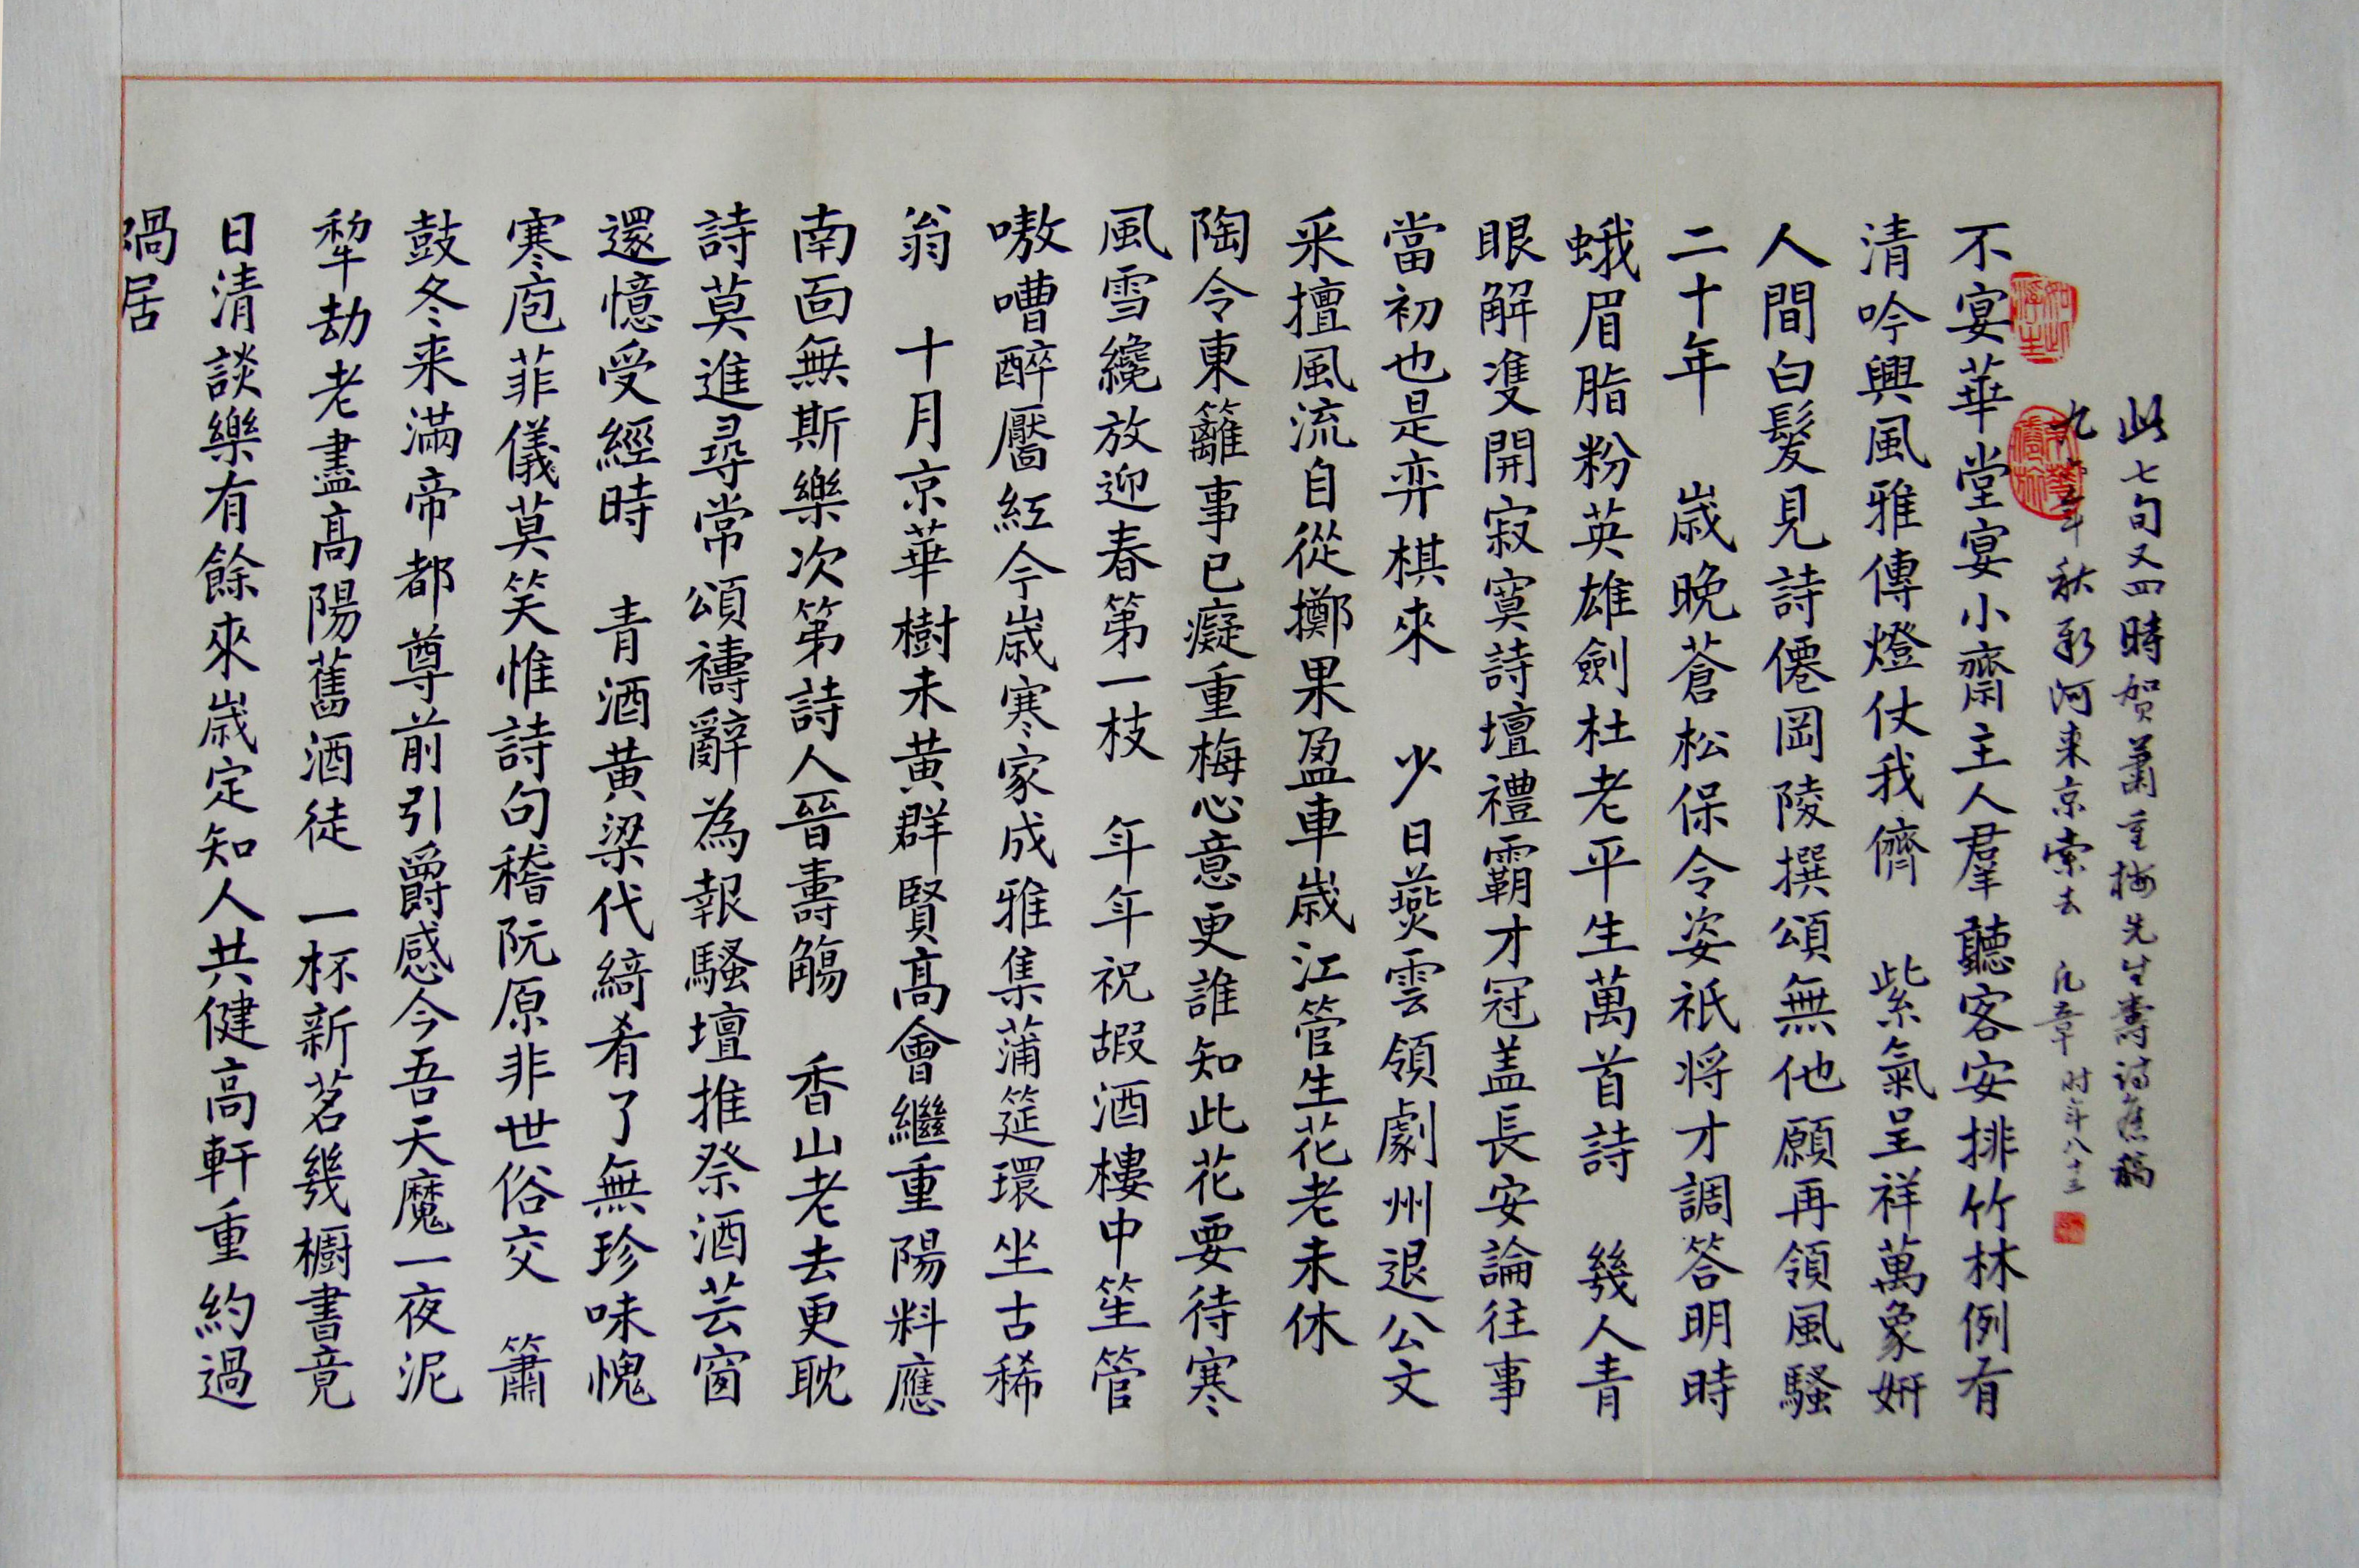 此七句又四時賀蕭重梅先生壽詩舊稿
年秋新河来京索去 凡章时年八十三
不宴華堂宴小齋主人羣聽客安排竹林例有
清吟興風雅傳燈仗我儕 紫氣呈祥萬象妍
人間白髮見詩僊岡陵撰頌無他願再領風騷
二十年 歲晚蒼松保令姿祇将才調答明時
蛾眉脂粉英雄劍杜老平生萬首詩 幾人青
眼解雙開寂寞詩壇禮霸才冠盖長安論往事
當初也是弈棋來 少日燕雲領劇州退公文
采擅風流自從擲果盈車歲江管生花老未休
陶令東籬事已癡重梅心意更誰知此花要待寒
風雪纔放迎春第一枝 年年祝嘏酒樓中笙管
嗷嘈醉靨紅今歲寒家成雅集蒲筵環坐古稀
翁 十月京華樹未黄群賢高會繼重陽料應
南面無斯樂次第詩人晉壽觴 香山老去更耽
詩莫進尋常頌禱辭為報騷壇推祭酒芸窗
還憶受經時 青酒黄粱代綺肴了無珍味愧
寒庖菲儀莫笑惟詩句稽阮原非世俗交 簫
鼓冬来滿帝都尊前引爵感今吾天魔一夜泥
犂劫老盡高陽舊酒徒 一杯新茗幾櫥書竟
日清談樂有餘來歲定知人共健高軒重約過
蝸居